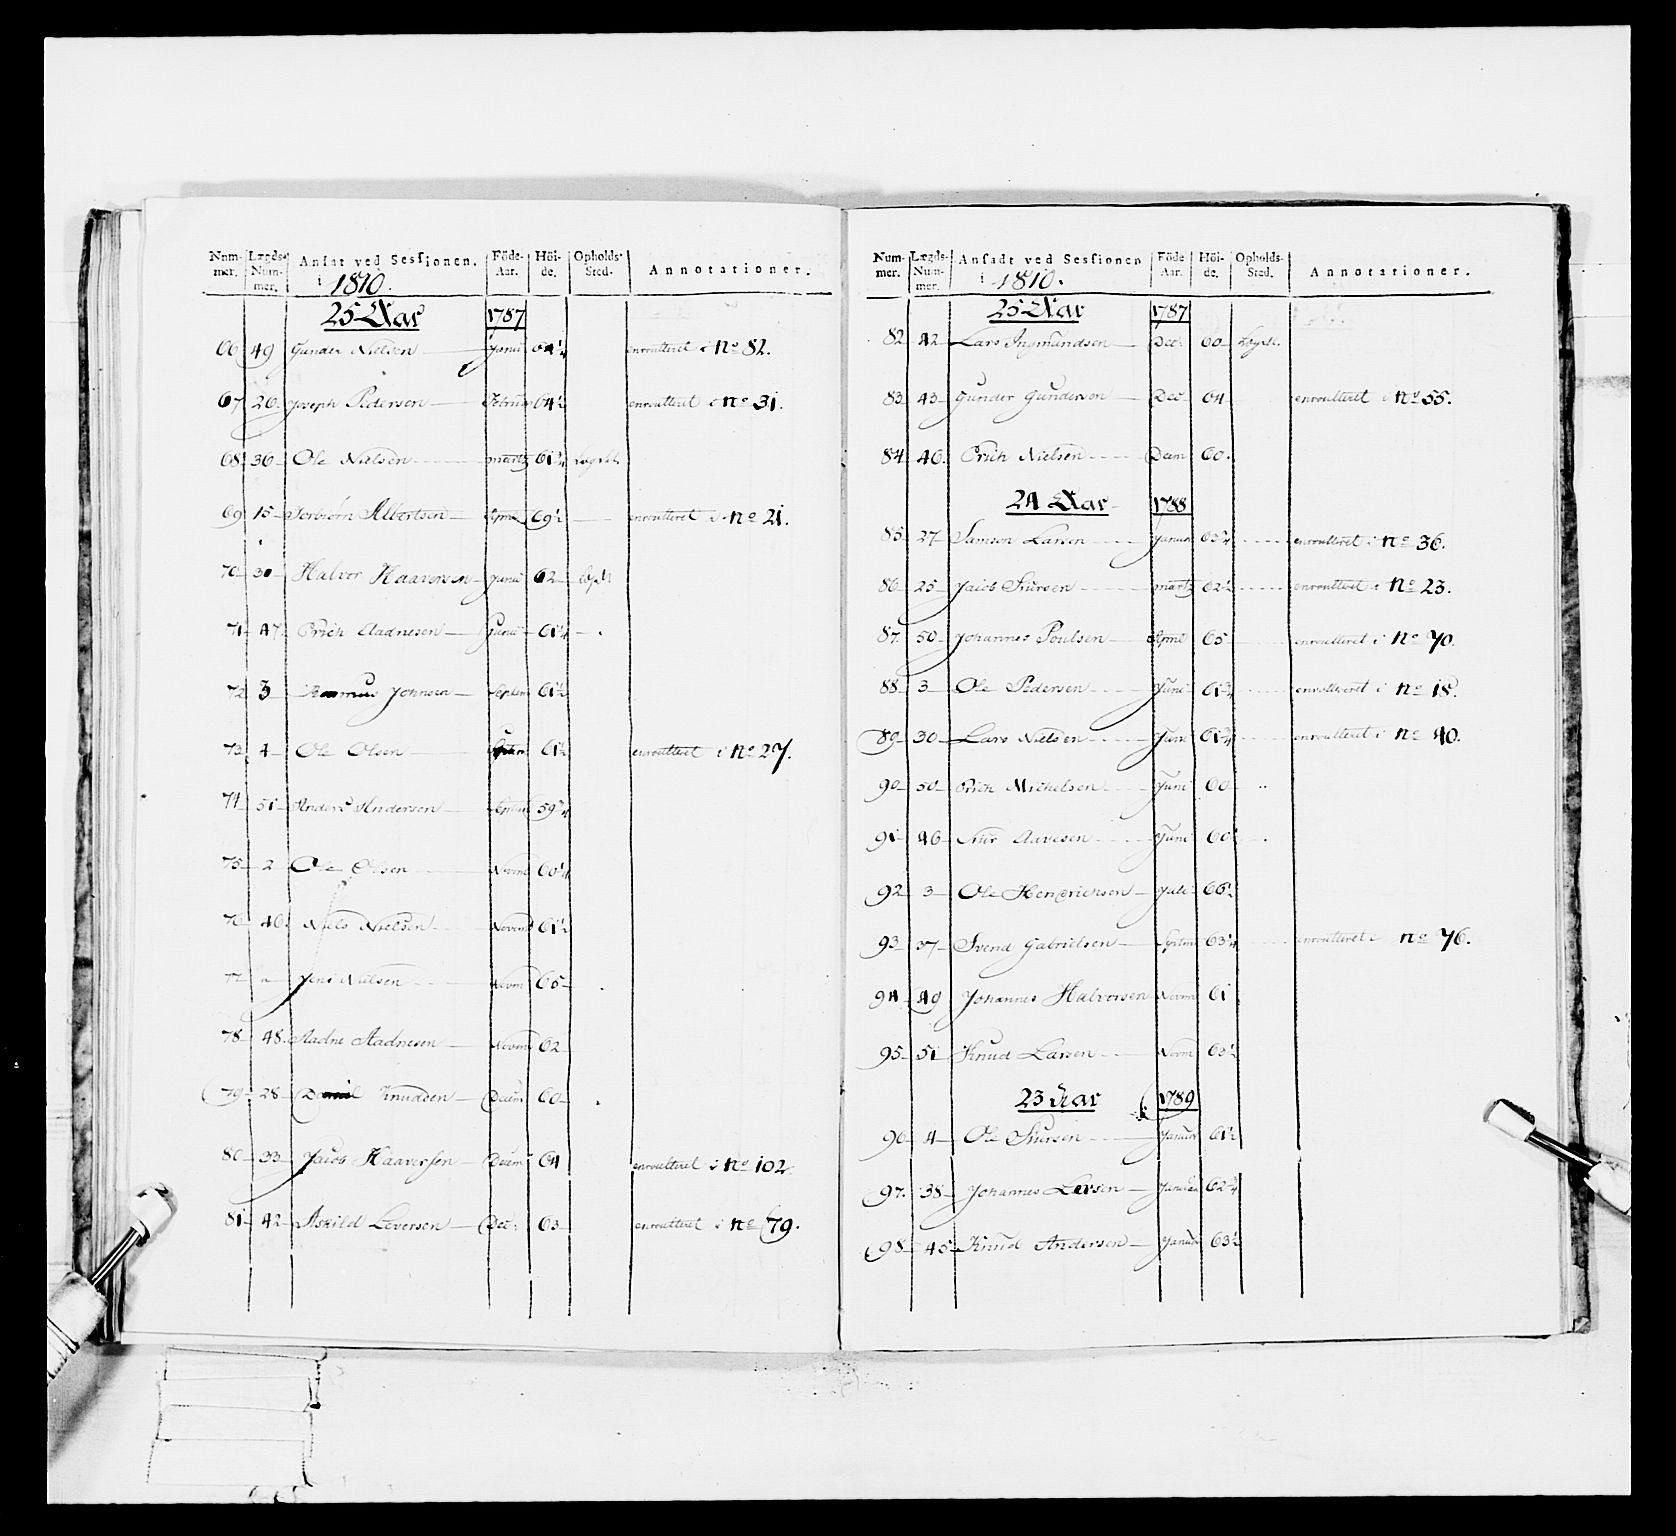 Num- Lægds- Ansat ved Sessionen. Føde- Høi- Opholds- Annotationer.
mer. Num- i 1810. Aar. de. Sted.
mer.
25 Aar 1787
66 49 Gunder Nielsen Janu 64 1/4 enroulleret i No 82.
67 26 Joseph Pedersen Februar 64 1/2 enroulleret i No 31.
68 36 Ole Nielsen Martz 61 3/4 Lægdet
69 15 Torbiørn Albertsen April 69 1/2 enroulleret i No 21.
70 30 Halvor Haaversen Junii 62 Lægdt
71 47 Erich Aadnesen Junii 61 1/4
72 3 Rasmus Johnsen Septem 61 1/2
73 4 Ole Olsen 61 1/2 enroulleret i No 27.
74 51 Anders Andersen Septem 59 3/4
75 2 Ole Olsen Novem 60 1/4
76 46 Niels Nielsen Novem 61 1/2
77 Jens Nielsen Novm 65
78 48 Aadne Aadnesen Novem 62
79 28 Daniel Knudsen Decem 60
80 33 Jacob Haaversen Decem 64 enroulleret i No 102.
81 42 Askild Leversen Dec: 63 enroulleret i No 79.
Num- Lægds- Ansadt ved Sessionen Føde Høi- Opholds- Annotationer.
mer. Num- i 1810. Aar. de. Sted.
mer.
25 Aar 1787
82 42 Lars Ingmundsen Dec: 60 Lægdt.
83 43 Gunder Gundersen Dec: 64 enroulleret i No 55.
84 46 Erich Nielsen Decm 60.
24 Aar 1788
85 27 Samson Larsen Januar 63 3/4 enroulleret i No 36.
86 25 Jacob Siursen Martz 62 1/2 enroulleret i No 23.
87 50 Johannes Poulsen April 65 enroulleret i No 70.
88 3 Ole Pedersen Juni 61 3/4 enrolleret i No 18.
89 30 Lars Nielsen Juni 61 3/4 enroulleret i No 40.
90 50 Erich Michelsen Juni 60
91 46 Siur Aavesen Juni 60
92 3 Ole Hendrichsen Juli 66 1/2
93 37 Svend Gabrielsen Septm 63 1/4 enroulleret i No 76.
94 49 Johannes Halvorsen Novm 61
95 51 Knud Larsen Novm 63 1/2
23 Aar 1789
96 4 Ole Siursen Januar 61 1/2
97. 38 Johannes Larsen Januar 62 3/4
98 45 Knud Andersen Januar 63 1/2